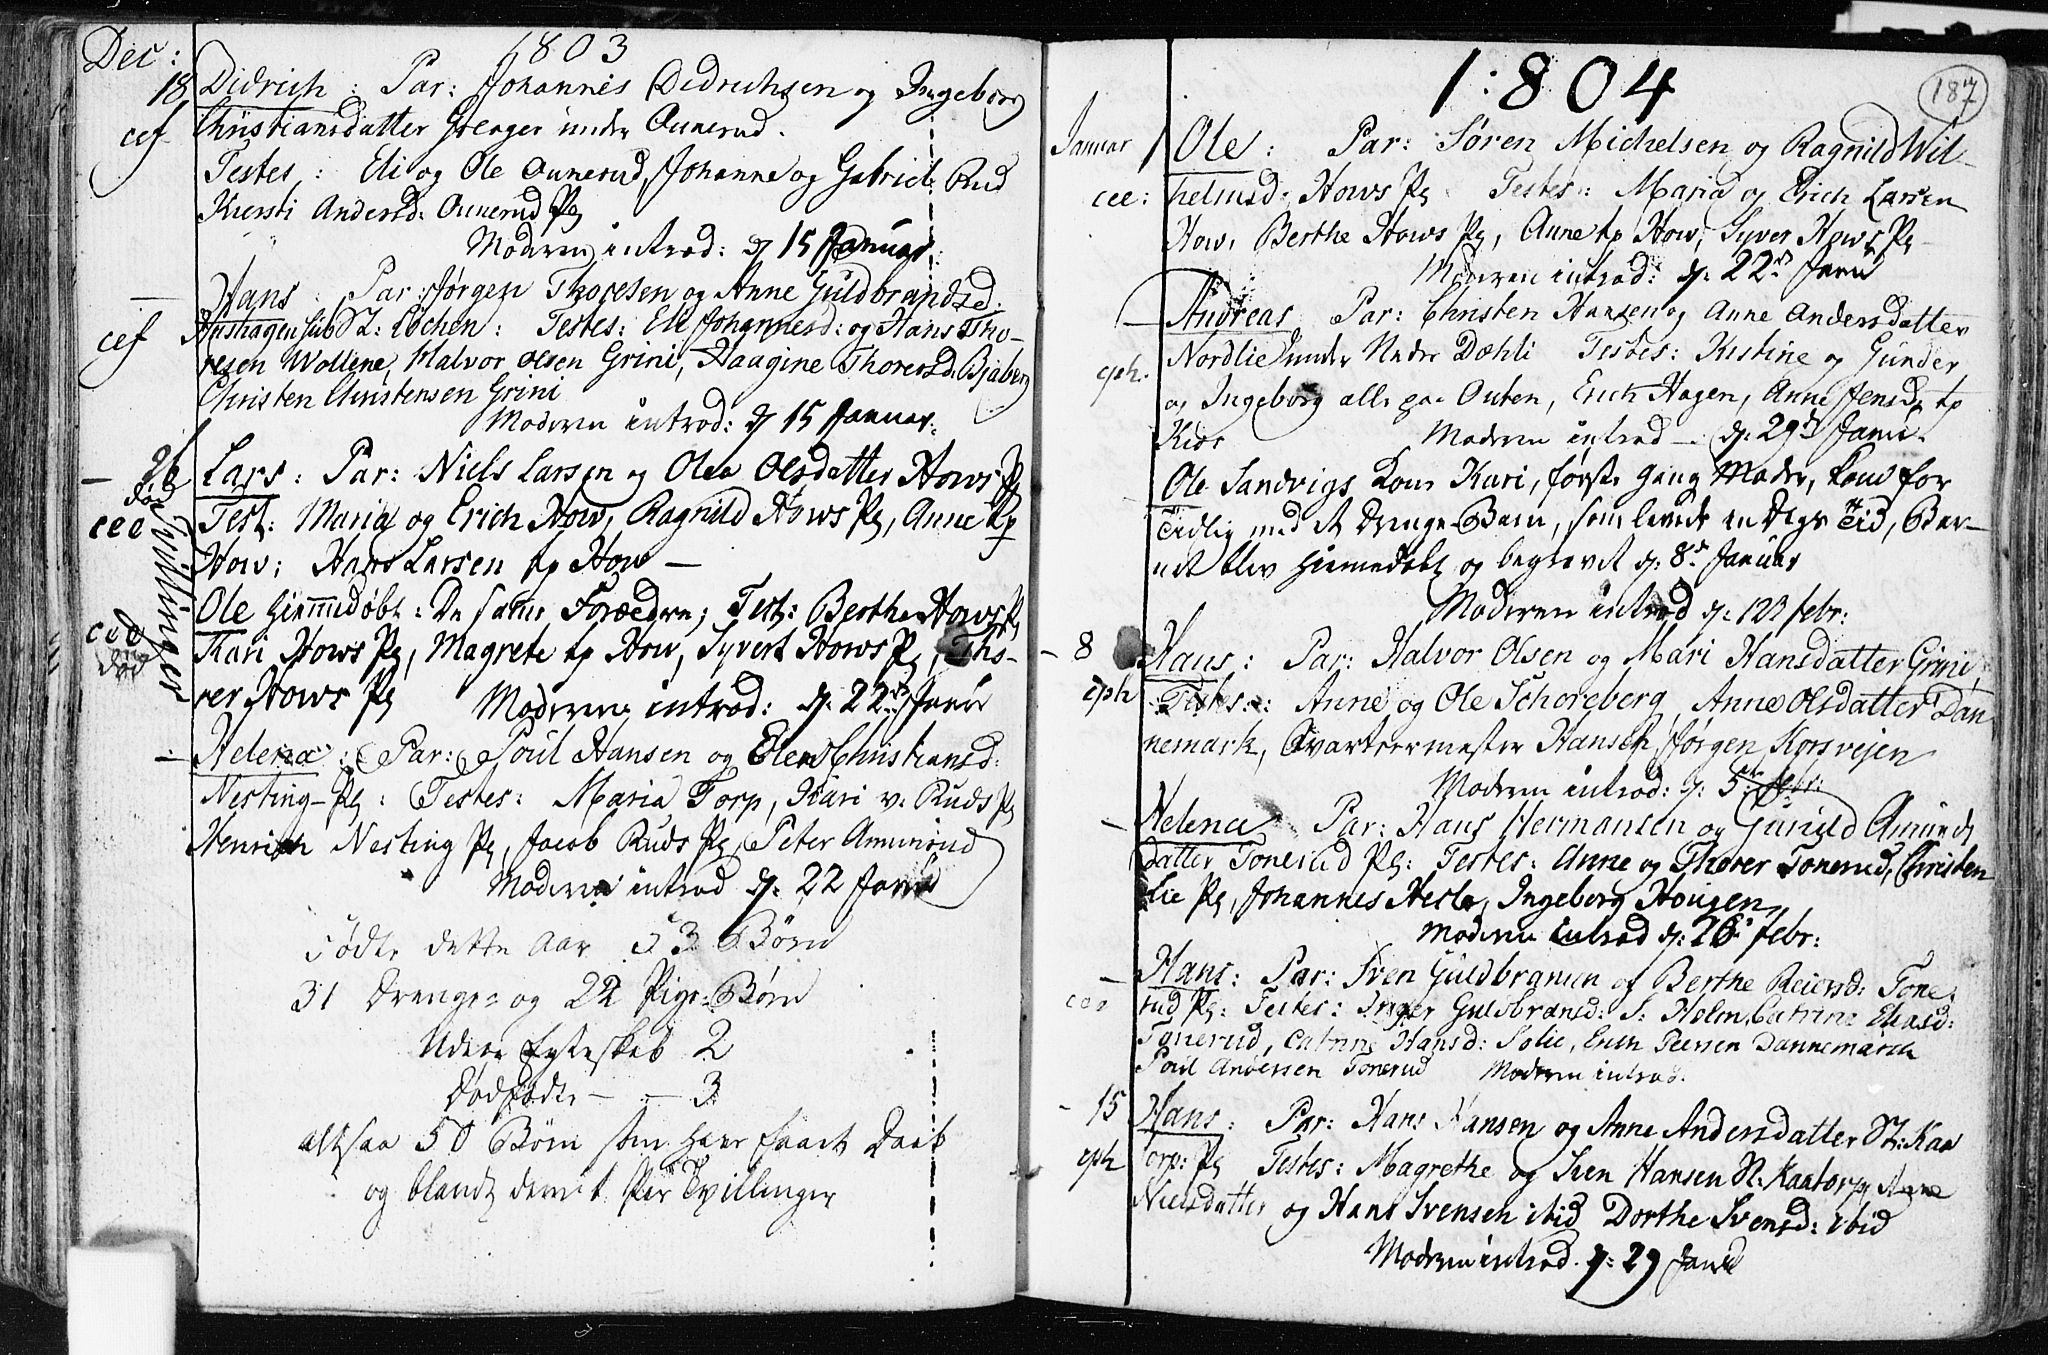 1803
Dec:
18 Didrich: Par: Johannes Didrichsen og Ingeborg
cef Christiansdatter Grenger under Ounerud.
Testes: Eli og Ole Ounerud, Johanne og Gabriel Rud
Kiersti Andersd: Ounerud Pg
Moderen introd: d 15 Januar
— Hans Par: Jørgen Thoresen og Anne Guldbrandsd:
cef sub St: Lochen: Testes: Eli Johannesd: og Hans Tho-
resen Wollene, Halvor Olsen Grini, Haagine Thoresd. Bjaberg
Christen Christensen Grini
Moderen introd: d 15 Januar.
— 26 Lars: Par: Niels Larsen og Olea Olsdatter Hows Pg
død
cee Test: Maria og Erich How, Ragnild Hows Pg, Anne tp
Tvillinger
How; Hans Larsen tp How —
Ole Hiemmedøbt: De samme Forældre; Test: Berthe Hows Pg
cee Kari Hows Pg, Magrete tp How, Syvert Hows Pg, Tho-
død
rer Hows Pg Moderen introd: d. 22 Janr
— Helena: Par: Poul Hansen og Elen Christiansd:
Nesting-Pg: Testes: Maria Torp, Kari v: Ruds Pg
Henrich Nesting Pg, Jacob Ruds Pg, Peter Amunrud
Moderen introd d. 22 Janr
Fødte dette Aar 53 Børn
31 Drenge- og 22 Pige-Børn
Uden Egteskab 2
Dødfødte — — 3
altsaa 50 Børn som have faaet Daab
og blandt dem 1 Par Tvillinger
187
1:804
Januar 1 Ole: Par: Søren Michelsen og Ragnild Wil-
cee: helmsd: Hows Pg Testes: Maria og Erich Larsen
How, Berthe Hows Pg, Anne tp How, Syver Hows Pg
Moderen introd: d. 22 Janr
— Andreas Par: Christen Hansen og Anne Andersdatter
eph. Nordlie under Nedre Dæhli Testes: Kistine og Gunder
og Ingeborg alle paa Outen, Erich Hagen, Anne Jensd. tp
Kiøs Moderen introd — d. 29 Janr.
Ole Sandvigs Kone Kari, første Gang Moder, kom for
tidlig med et Drenge-Barn, som levede en Dags Tid, Bar-
net blev hiemmedøbt og begravet d. 8 Januar
Moderen introd d. 12 febr:
— 8 Hans: Par: Halvor Olsen og Mari Hansdatter Grini,
eph Testes: Anne og Ole Schoreberg, Anne Olsdatter Dan
nemark, Qvarteermester Hansen, Jørgen Korsvejen
Moderen introd: d. 5 febr:
— Helena Par: Hans Hermansen og Gunild Amunds
datter Tonerud Pg: Testes: Anne og Thorer Tonerud, Christen
Lie Pg, Johannes Hesle, Ingeborg Hougen
Moderen introd d. 26 febr:
— Hans: Par: Sven Guldbransen og Berthe Reiersd: Tone
cee rud Pg: Testes: Inger Guldbransd: S: Holm, Catrine Eliasd:
Tonerud, Catrine Hansd: Solie, Erich Peersen Dannemarch
Poul Andersen Tonerud Moderen introd.
— 15 Hans: Par: Hans Hansen og Anne Andersdatter St: Kaa
eph torp: Pg Testes: Magrethe og Sven Hansen St: Kaatorp, Anne
Nielsdatter og Hans Svensen ibid Dorthe Svensd: ibid
Moderen introd. d. 29 Janr